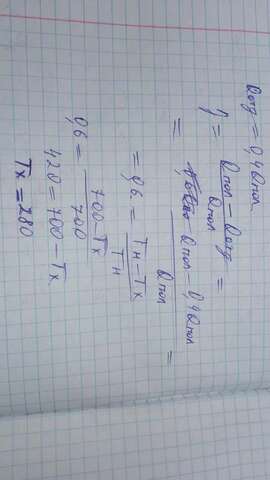 Qотд = 0,4Qпол
η = (Qпол − Qотд)/Qпол =
= (Qпол − 0,4Qпол)/Qпол =
= 0,6 = (Тн − Тх)/Тн
0,6 = (700 − Тх)/700
420 = 700 − Тх
Тх = 280